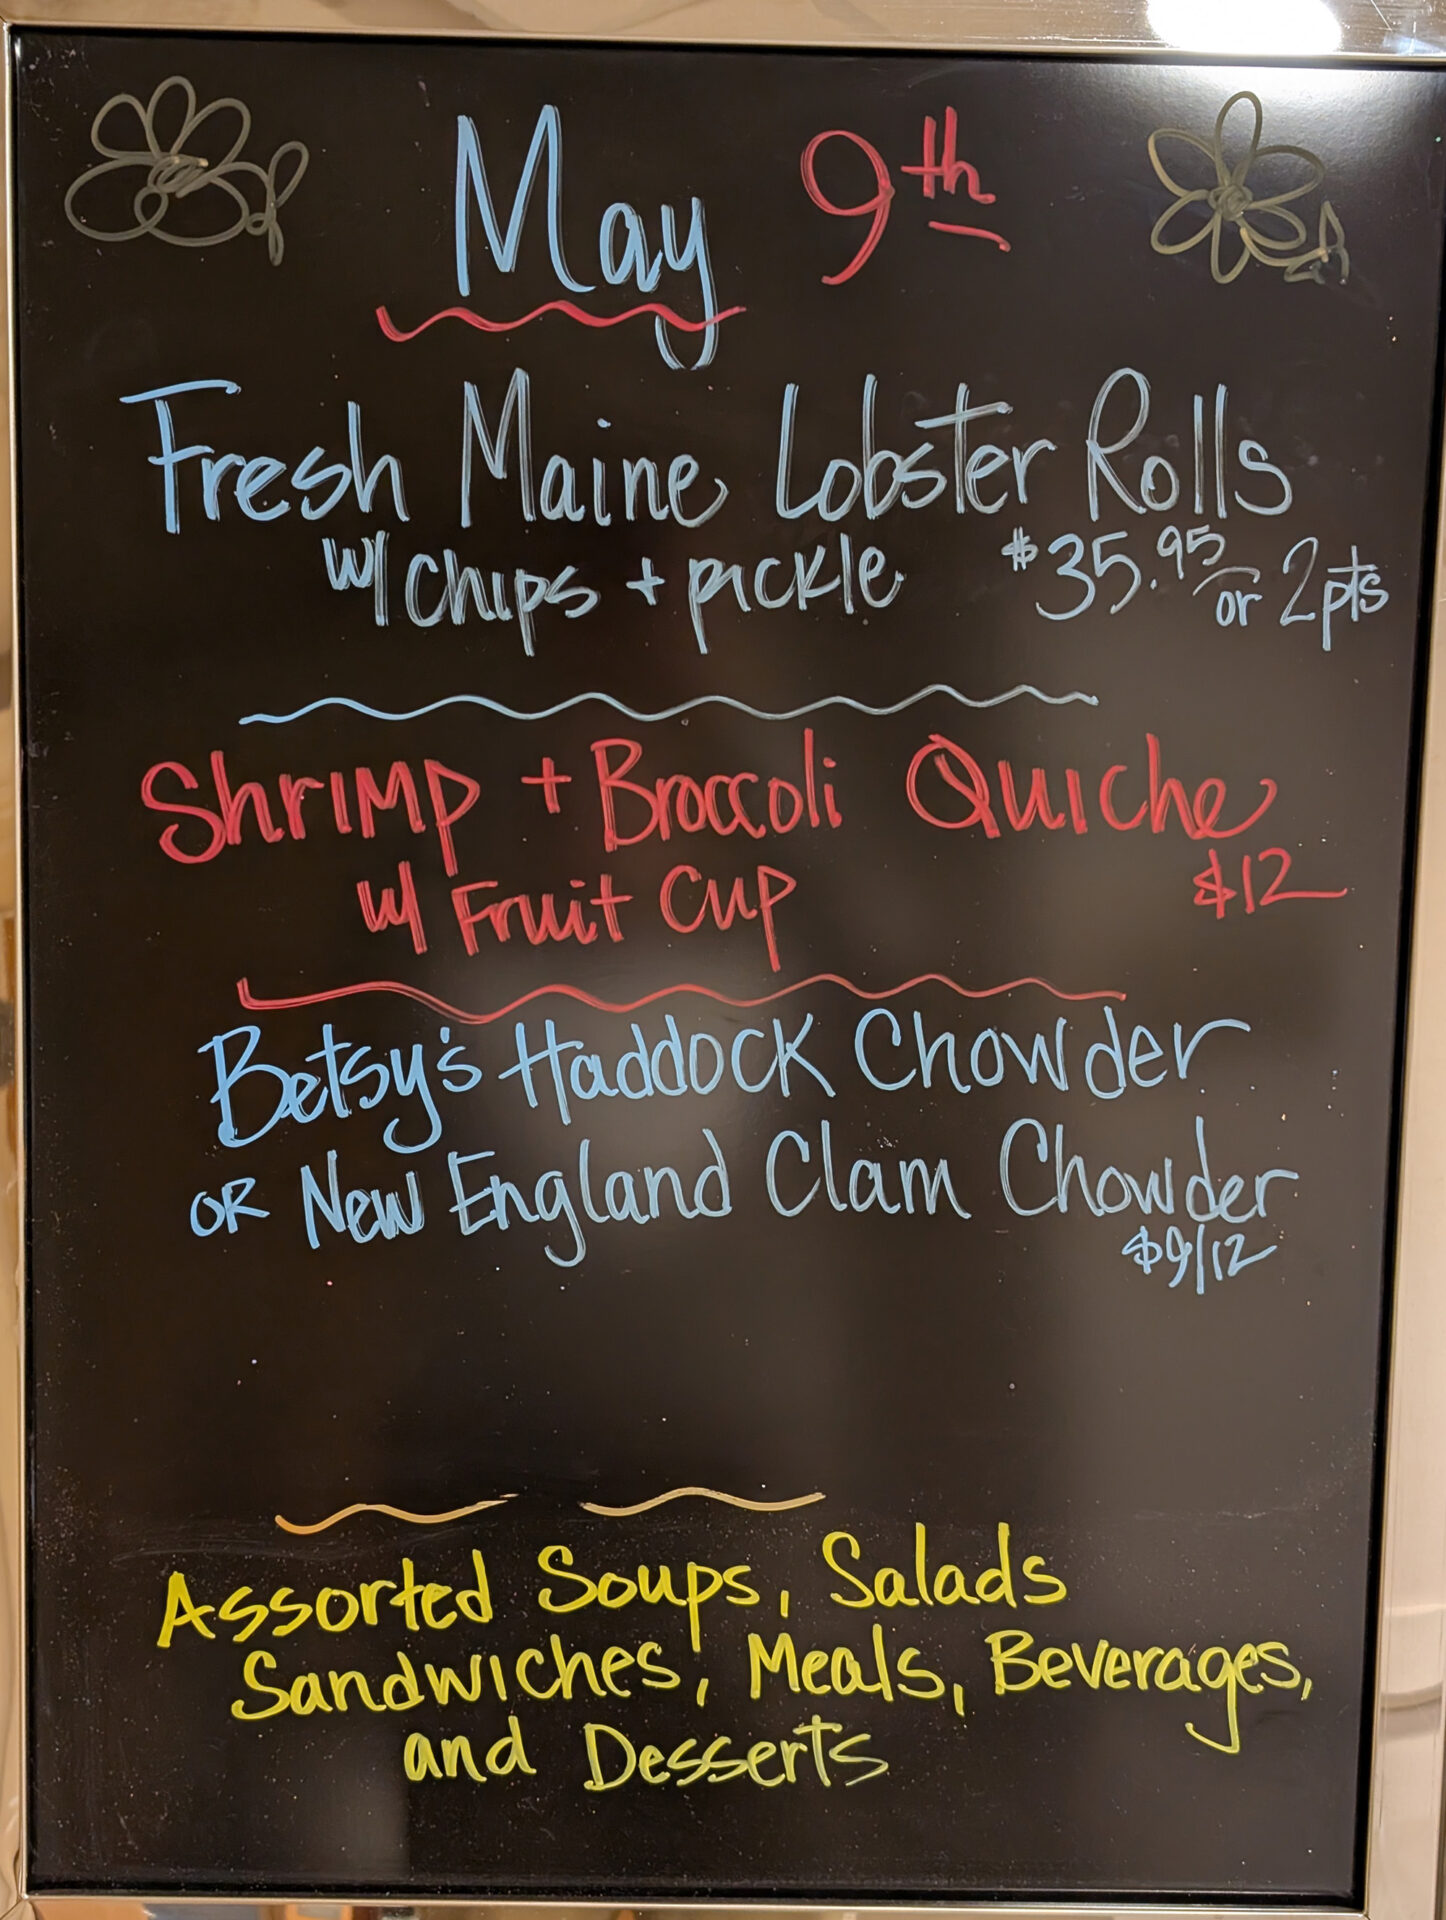 May 9th
Fresh Maine Lobster Rolls
w/ chips + pickle $35.95 or 2pts
Shrimp + Broccoli Quiche
w/ Fruit Cup $12
Betsy's Haddock Chowder
OR New England Clam Chowder
$9/12
Assorted Soups, Salads
Sandwiches, Meals, Beverages,
and Desserts